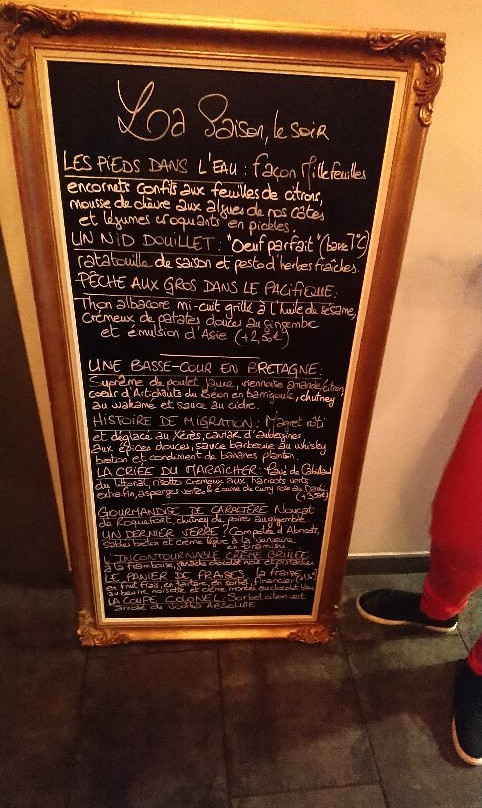 La Saison, le soir
LES PIEDS DANS L'EAU : Façon Millefeuilles
encornets confits aux feuilles de citrons,
mousse de chèvre aux algues de nos côtes
et légumes croquants en pickles.
UN NID DOUILLET : "Oeuf parfait"
ratatouille de saison et pesto d'herbes fraîches.
PÊCHE AUX GROS DANS LE PACIFIQUE :
Thon albacore mi-cuit grillé à l'huile de sésame,
Crémeux de patates douces au gingembre
et émulsion d'Asie (+2,50€)
UNE BASSE-COUR EN BRETAGNE :
Suprême de poulet jaune, viennoise amande/citron,
coeur d'Artichauts du Léon en barrigoule, chutney
au wakamé et sauce au cidre.
HISTOIRE DE MIGRATION : Magret rôti
et déglacé au Xérès, caviar d'aubergines
aux épices douces, sauce barbecue au whisky
breton et condiment de bananes plantin.
LA CRIÉE DU MARAÎCHER : Pavé de Cabillaud
du littoral, risotto crémeux aux haricots verts
extra-fin, asperges vertes, écume de curry
GOURMANDISE DE CARACTÈRE Nougat
de Roquefort, chutney de poires au gingembre
UN DERNIER VERRE ? Compotée d'Abricots,
sablés breton et crème légère à la verveine
en tiramisu.
L'INCONTOURNABLE CRÈME BRULÉE
à la framboise, ganache chocolat noir et pistaches.
LE PANIER DE FRAISES : la fraise
en fruit frais, en tartare, en sorbet, Financier
au beurre noisette et crème montée au chocolat blanc
LA COUPE COLONEL : Sorbet citron vert
arrosé de Vodka ABSOLUTE